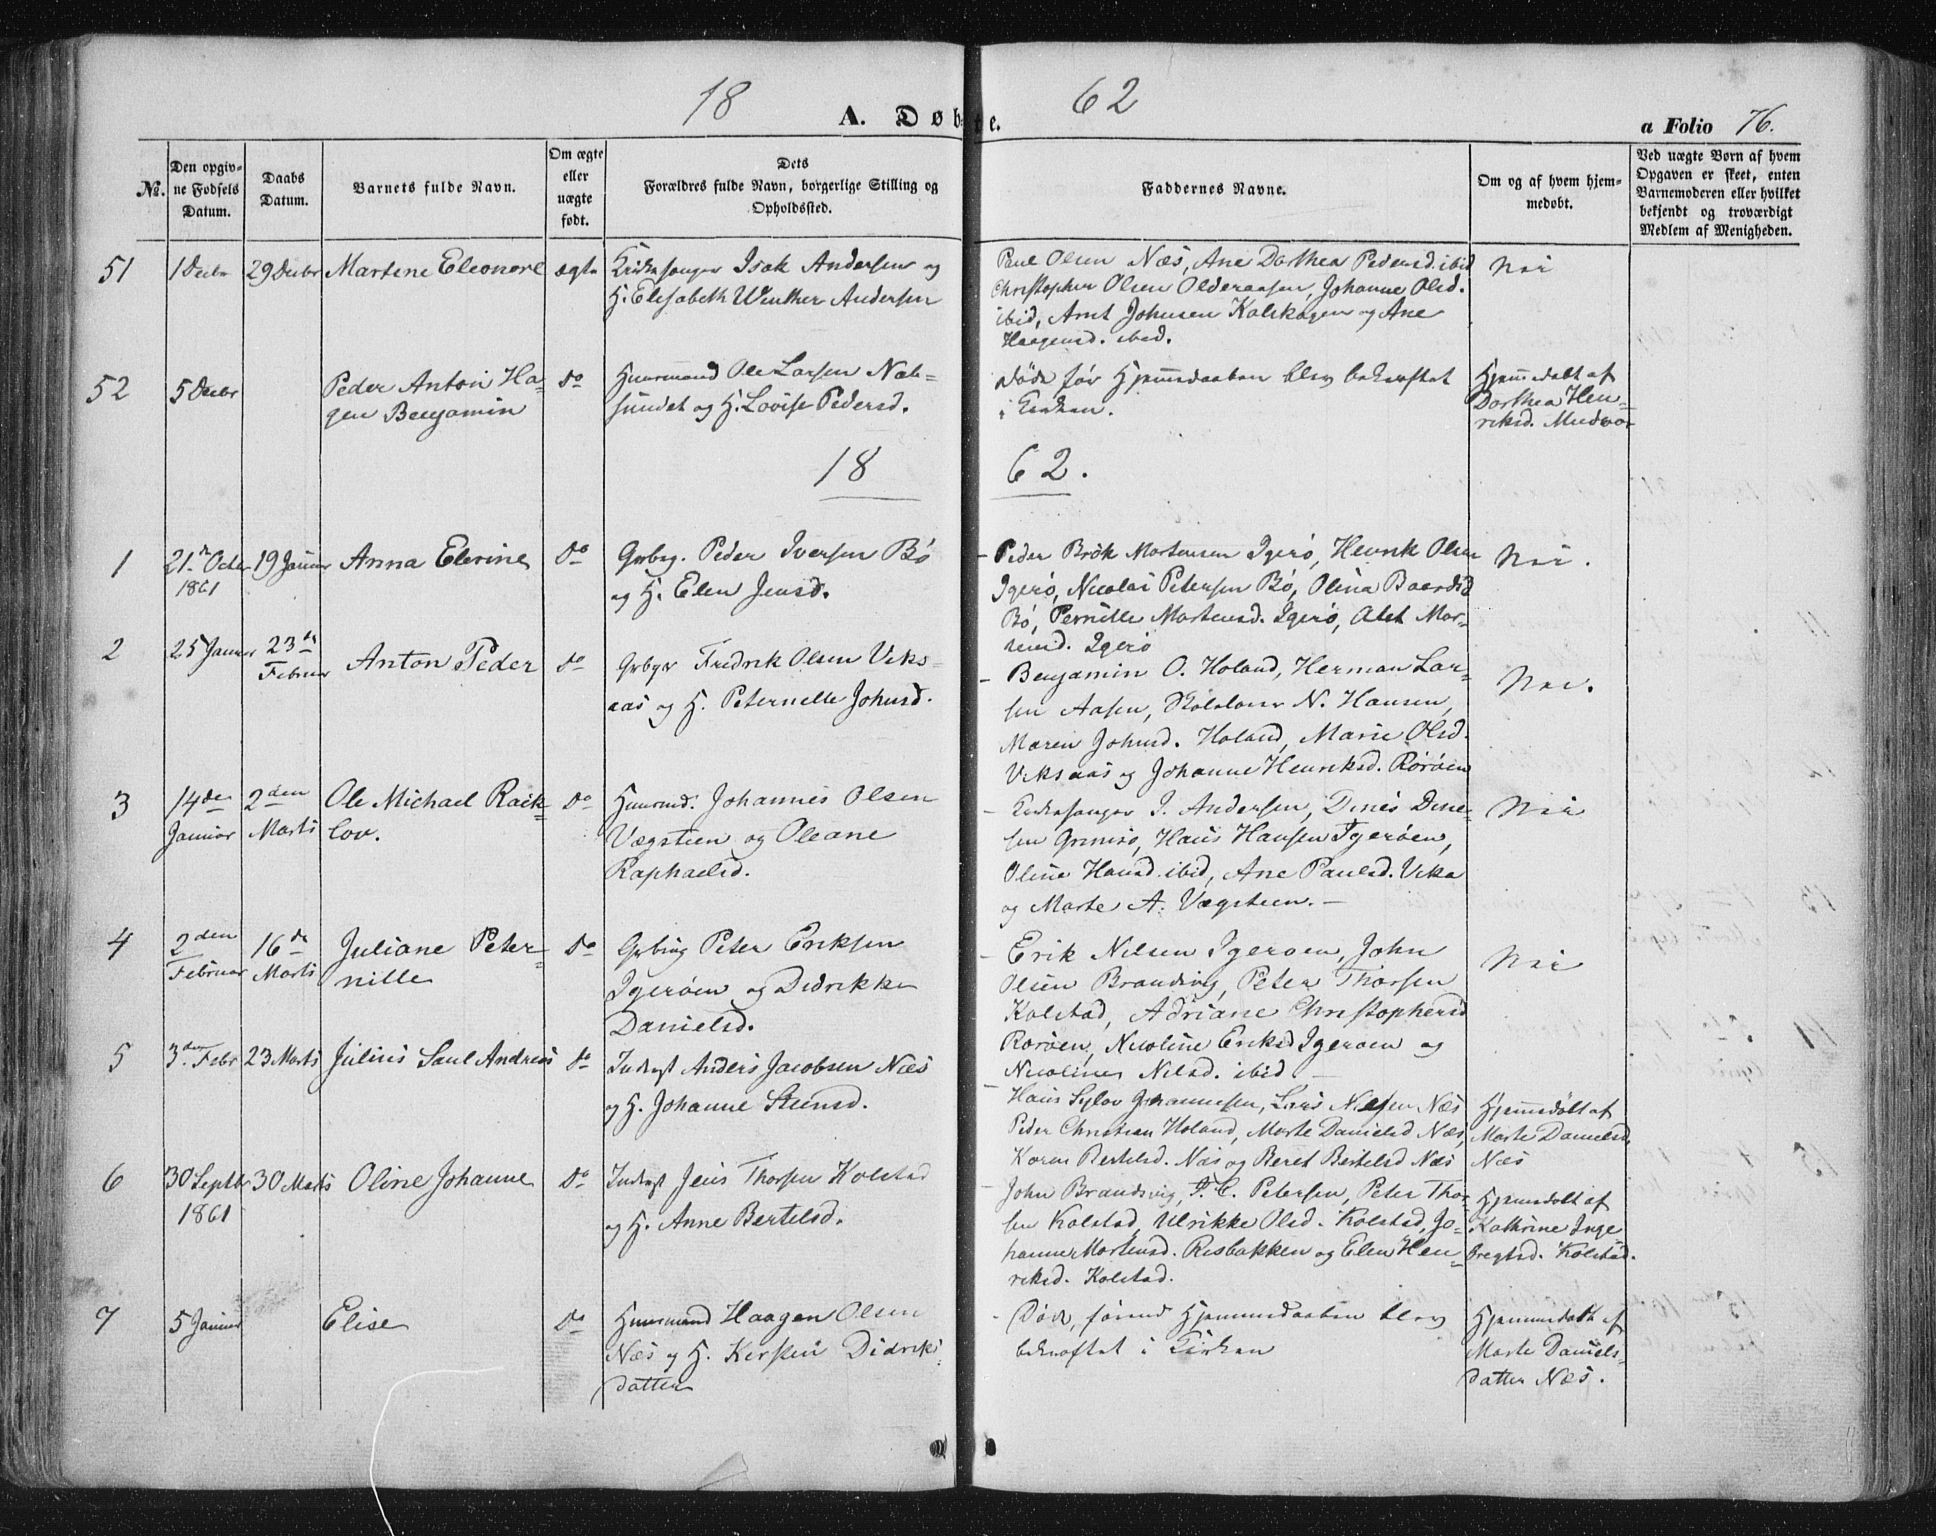 18 62
A. Døbte.
a Folio 76.
№.
Den opgiv-
ne Fødsels
Datum.
Daabs
Datum.
Barnets fulde Navn.
Om ægte
eller
uægte
født.
Dets
Forældres fulde Navn, borgerlige Stilling og
Opholdssted.
Faddernes Navne.
Om og af hvem hjem-
medøbt.
Ved uægte Børn af hvem
Opgaven er skeet, enten
Barnemoderen eller hvilket
bekjendt og troværdigt
Medlem af Menigheden.
51
1 Decbr
29 Decbr
Martine Eleonore
ægte
Kirkesanger Isak Andersen og
H. Elisabeth Winther Andersen
Paul Olsen Næs, Ane Dorthea Pedersd. ibid
Christopher Olsen Olderaasen, Johanne Olsd.
ibid, Arnt Johnsen Kalskagen og Ane
Haagensd. ibid.
Nei
52
5 Decbr
Peder Anton Ha-
gen Benjamin
Do
Huusmand Ole Larsen
sundet og H. Lovise Pedersd.
Døde før Hjemmedaaben blev bekræftet
i Kirken.
Hjemmedøbt af
Dorthea Hen-
riksd.
18 62.
1
21de Octbr
1861
19 Januar
Anna Elerine
Do
Grbrg. Peder Iversen Bø
og H. Elen Jensd.
- Peder Brøk Mortensen Igerø, Henrik Olsen
Igerø, Nicolai Petersen Bø, Olina Baardsd
Bø, Pernille Mortensd. Igerø, Alet Mor-
tensd. Igerø
Nei.
2
25 Januar
23de
Februar
Anton Peder
Do
Grbgr Fredrik Olsen Viks-
aas og H. Peternelle Johnsd.
- Benjamin O. Holand, Herman Lar-
sen Aasen, Skolelærer N. Hansen,
Maren Johnsd. Holand, Marie Olsd.
Viksaas og Johanne Henriksd. Rørøen
Nei.
3
14de
Januar
2den
Marts
Ole Michael Raik-
lov.
Do
Huusmd. Johannes Olsen
Vægsteen og Oleane
Raphaelsd.
- Kirkesanger I. Andersen, Dines Dine-
sen Grimsø, Hans Hansen Igerøen,
Oline Hansd. ibid, Ane Paulsd. Vika
og Marte A. Vægsteen. -
Nei
4
2den
Februar
16de
Marts
Juliane Peter-
nille
Do
Grbrug Peter Eriksen
Igerøen og Didrikke
Danielsd.
- Erik Nilsen Igerøen, John
Olsen Brandsvig, Peter Thorsen
Kolstad, Adriane Christophersd
Rørøen, Nicoline Eriksd Igerøen og
Nicoline Nilsd. ibid -
Nei
5
3die Febr
23 Marts
Julius Saul Andreas
Do
Inderst Anders Jacobsen Næs
og H. Johanne Steensd.
- Hans Sylov Johannesen, Lars Nilsen Næs
Peder Christian Holand, Marte Danielsd Næs,
Karen Bertelsd. Næs og Beret Bertelsd Næs
Hjemmedøbt af
Marte Danielsd.
Næs
6
30 Septbr
1861
30 Marts
Oline Johanne
Do
Inderst Jens Thorsen Kolstad
og H. Anne Bertelsd.
- John Brandsvig, P. C. Petersen, Peter Thor-
sen Kolstad, Ulrikke Olsd. Kolstad, Jo-
hanne Mortensd. Risbakken og Elen Hen-
riksd. Kolstad.
Hjemmedøbt af
Kathrine Inge-
bregtsd. Kolstad.
7
5 Januar
Elise
Do
Huusmand Haagen Olsen
Næs og H. Kirsten Didriks-
datter
- Døde, førend Hjemmedaaben blev
bekræftet i Kirken
Hjemmedøbt af
Marte Daniels-
datter Næs.